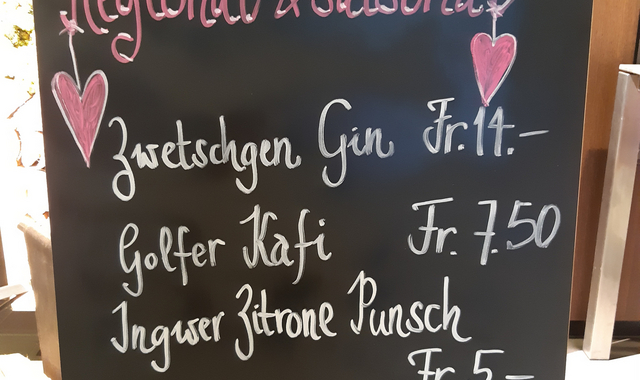 Regional & Saisonal
Zwetschgen Gin Fr. 14.–
Golfer Kafi Fr. 7.50
Ingwer Zitrone Punsch
Fr. 5.–